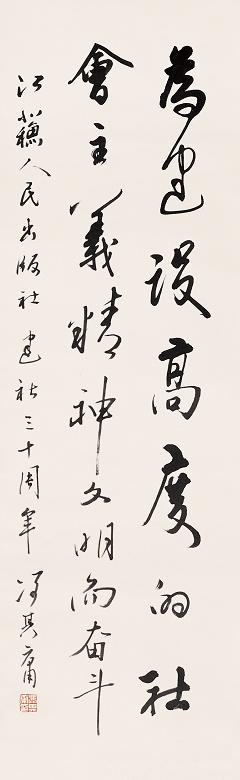 為建设高度的社
會主義精神文明而奋斗
江苏人民出版社建社三十周年 冯其庸